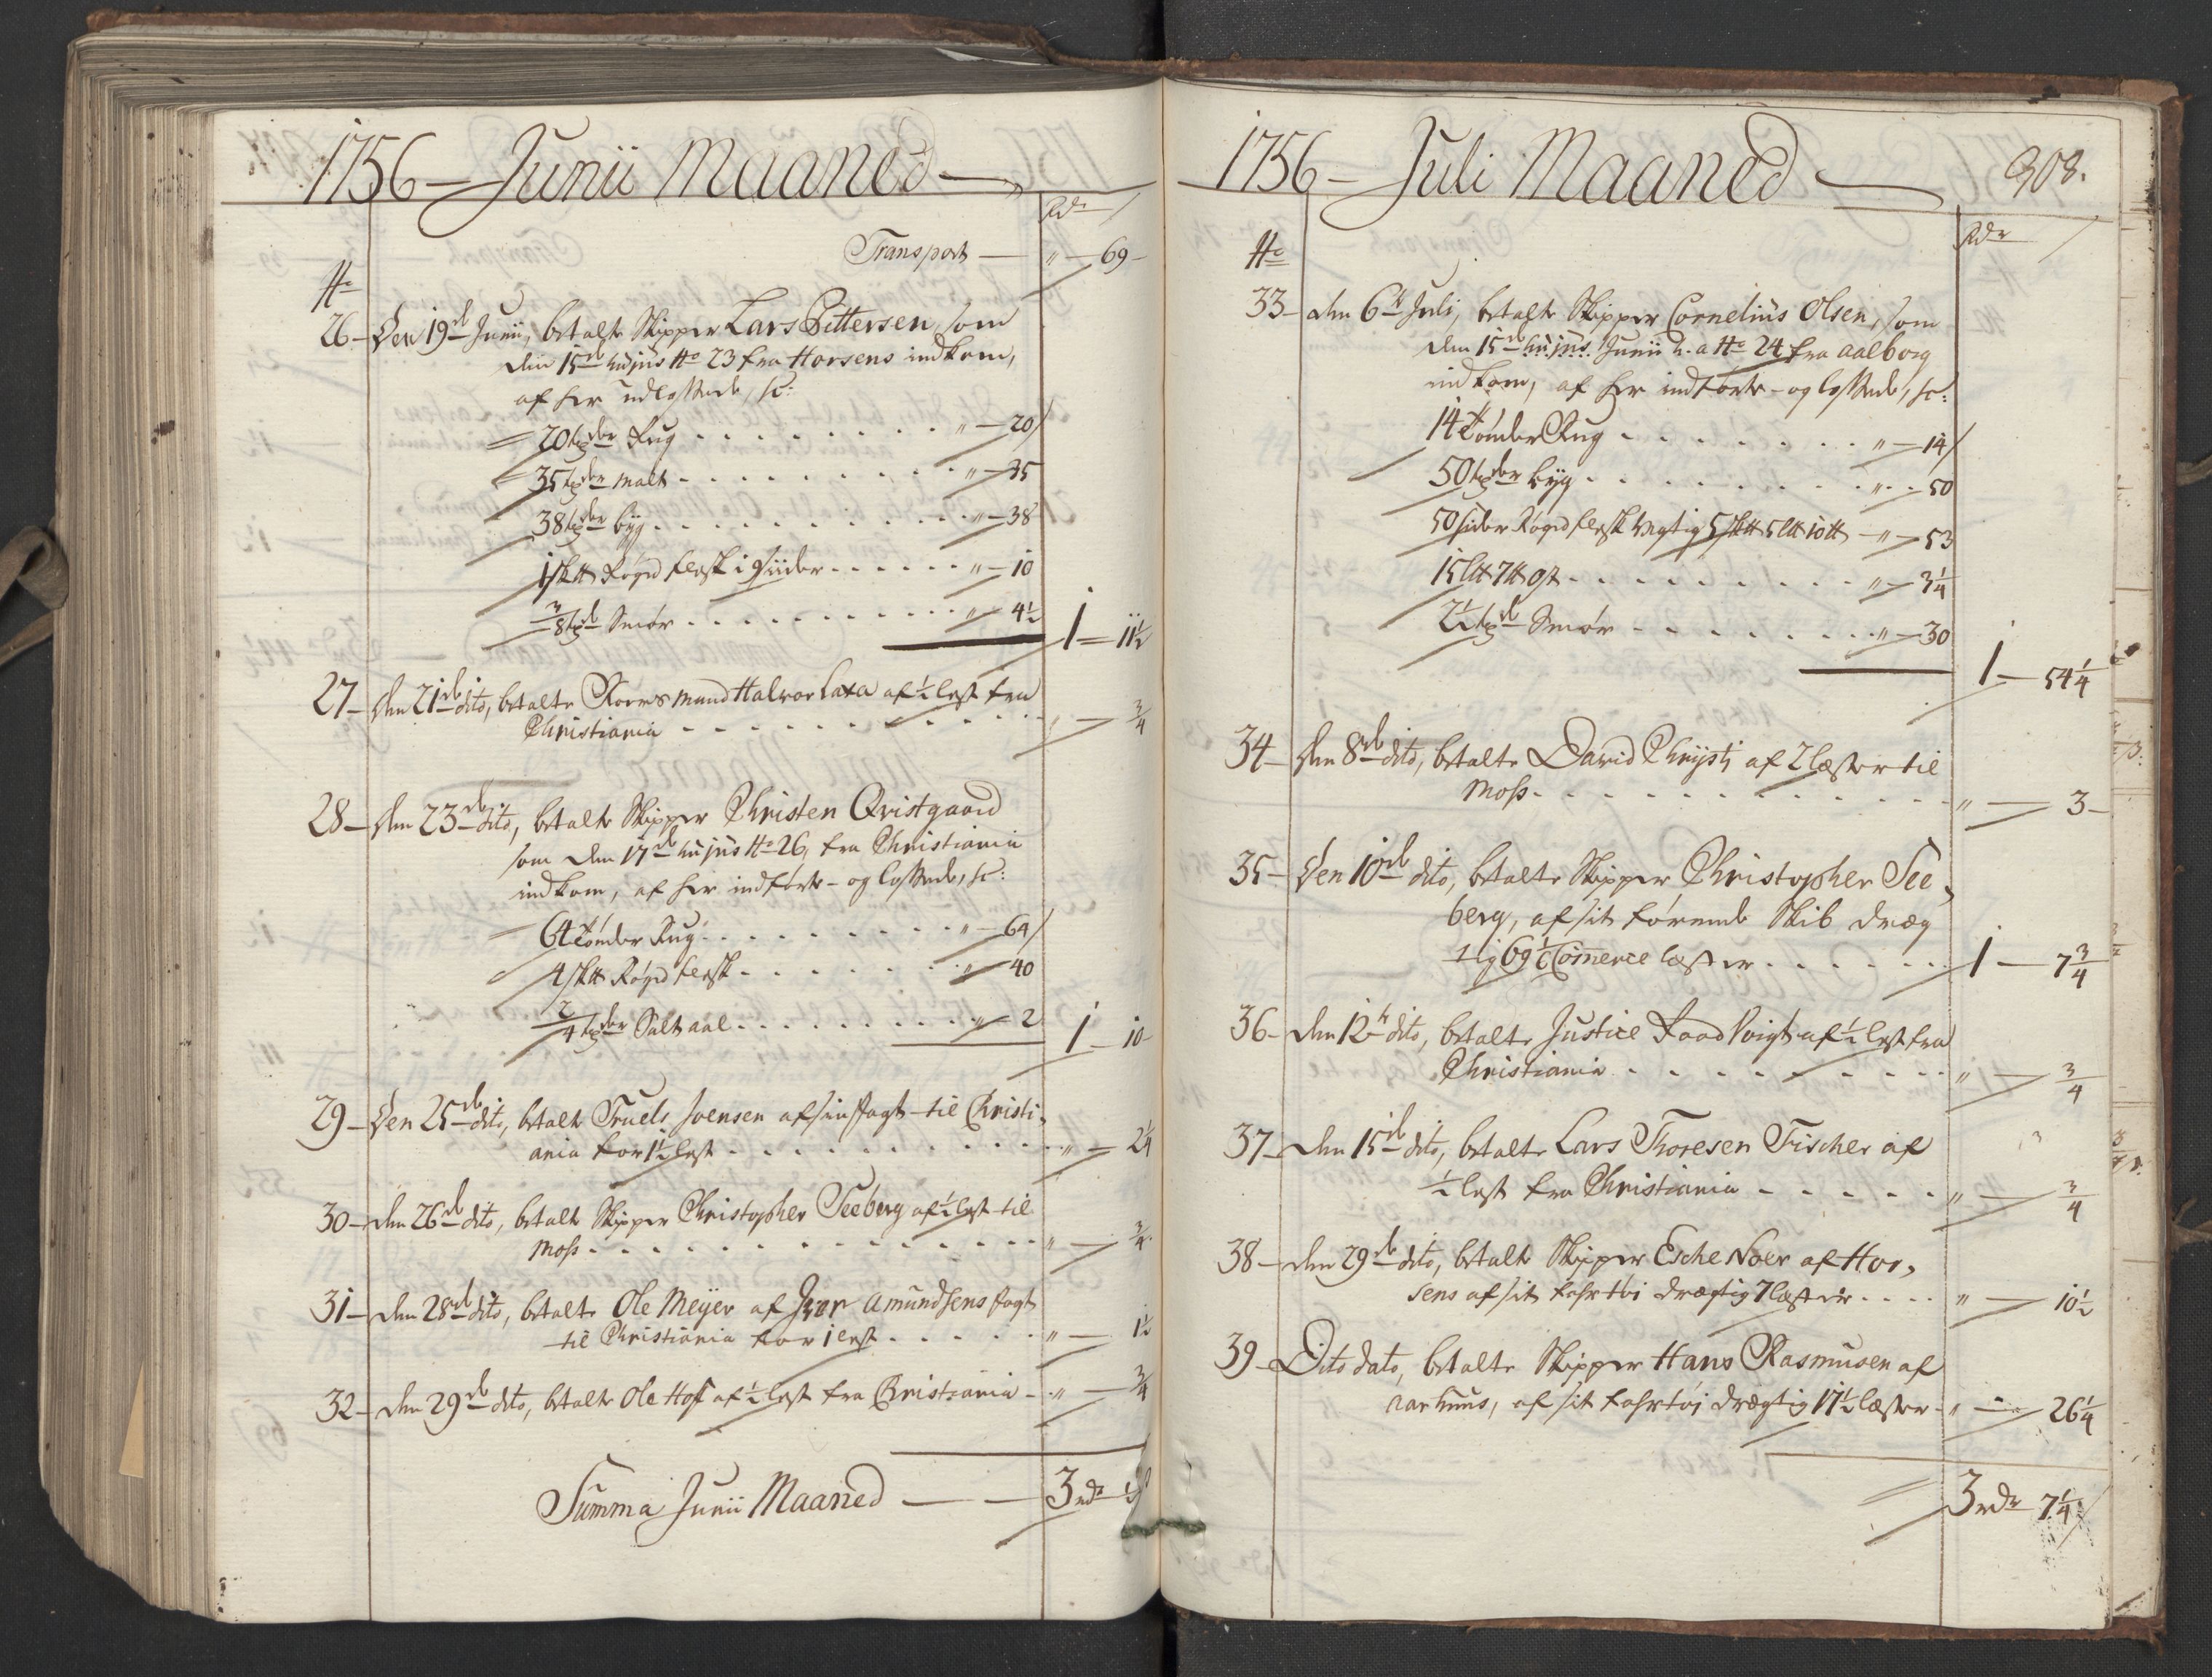 1756 – Junii Maaned
Rdr
Transport — " — 69 –
No
26 – Den 19de Junii, betalte Skipper Lars Pittersen, som
den 15de hujus No 23 fra Horsens indkom,
af her udlossede, sc:
20 tønder Rug . . . . " – 20
35 tønder malt . . . . " – 35
38 tønder byg . . . . " – 38
1 sk℔ Røgd flesk i 9 siider . . . . " – 10
3/8 tønde Smør . . . . " 4½
1 – 11½
27 – den 21de dito, betalte Roersmand Halvor Laxa af ½ lest fra
Christiania . . . . " – ¾
28 – den 23de dito, betalte Skipper Christen Qvistgaard
som den 17de hujus No 26, fra Christiania
indkom, af her indførte – og lossede, sc:
64 tønder Rug . . . . " – 64
4 sk℔ Røgd flesk . . . . " – 40
2/4 tønder Salt aal . . . . " – 2
1 – 10
29 – Den 25de dito, betalte Truels Joensen af sin Jagt til Christi,
ania for 1½ lest . . . . " – 2¼
30 – den 26de dito, betalte Skipper Christopher Seeberg af ½ lest til
Moss . . . . " – ¾
31 – den 28de dito, betalte Ole Meyer af Iver Amundsens Jagt
til Christiania for 1 lest . . . . " – 1½
32 – den 29de dito, betalte Ole Hoff af ½ lest fra Christiania – " – ¾
Summa Junii Maaned — — 3 rdr
1756 – Juli Maaned
308.
Rdr
No
33 – den 6te Juli, betalte Skipper Cornelius Olsen, som
den 15de hujus Junii h. a No 24 fra Aalborg
indkom, af her indførte – og lossede, sc:
14 tønder Rug . . . . " – 14
50 tønder byg . . . . " – 50
50 sider Røgd flesk Vegtig 5 sk℔ 5 l℔ 10 ℔ – " – 53
15 l℔ 7 ℔ ost . . . . " – 3¼
2½ tønde Smør . . . . " – 30
1 – 54¼
34 – den 8de dito, betalte David Chrysti af 2 læster til
Moss . . . . " – 3 –
35 – Den 10de dito, betalte Skipper Christopher See,
berg, af sit førende Skib dræg
tig 69½ Comerce læster . . . . 1 – 7¾
36 – den 12te dito, betalte Justice Raad Voigt af ½ lest fra
Christiania . . . . " – ¾
37 – den 15de dito, betalte Lars Thoresen Fischer af
½ lest fra Christiania . . . . " – ¾
38 – den 29de dito, betalte Skipper Esche Noer af Hor,
sens af sit fahrtøi drægtig 7 læster . . . . " – 10½
39 – Dito dato, betalte Skipper Hans Rasmusen af
aarhuus, af sit fahrtøi drægtig 17½ læster – " – 26¼
3 rdr 7¼